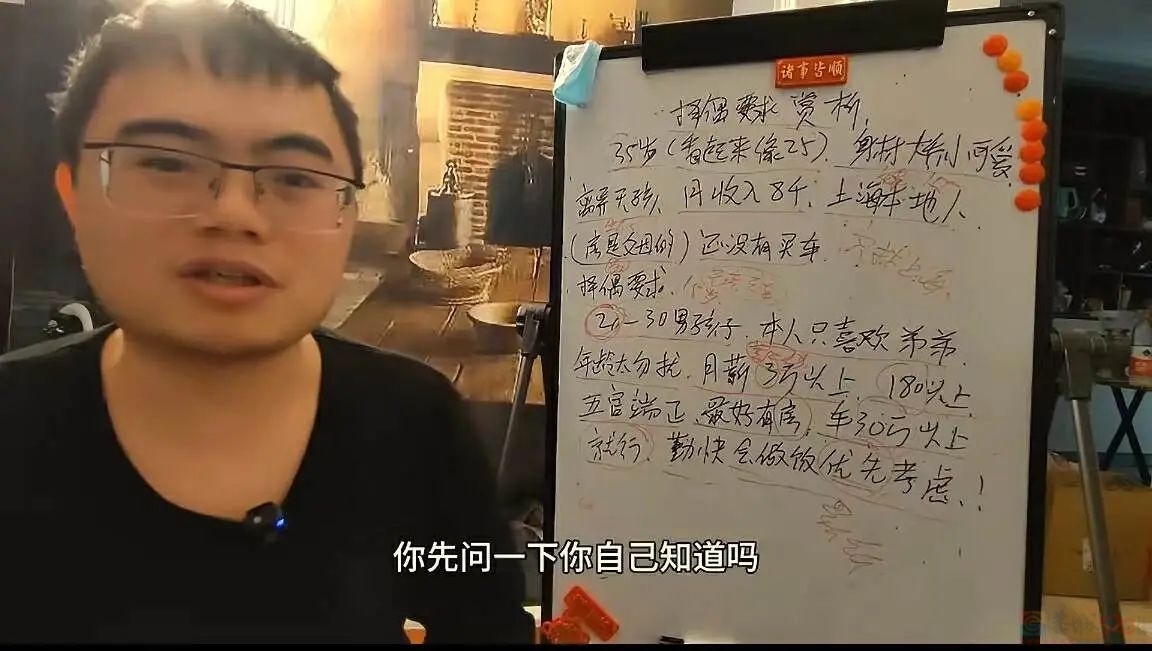 诸事皆顺
择偶要求赏析
35岁(看起来像25)、身材娇小可爱
离异无孩、月收入8千、上海本地人
(房是父母的)还没有买车
择偶要求
21-30男孩子、本人只喜欢弟弟
年龄太勿扰、月薪3万以上、180以上
五官端正、最好有房、车30万以上
就行、勤快会做饭优先考虑!
你先问一下你自己知道吗